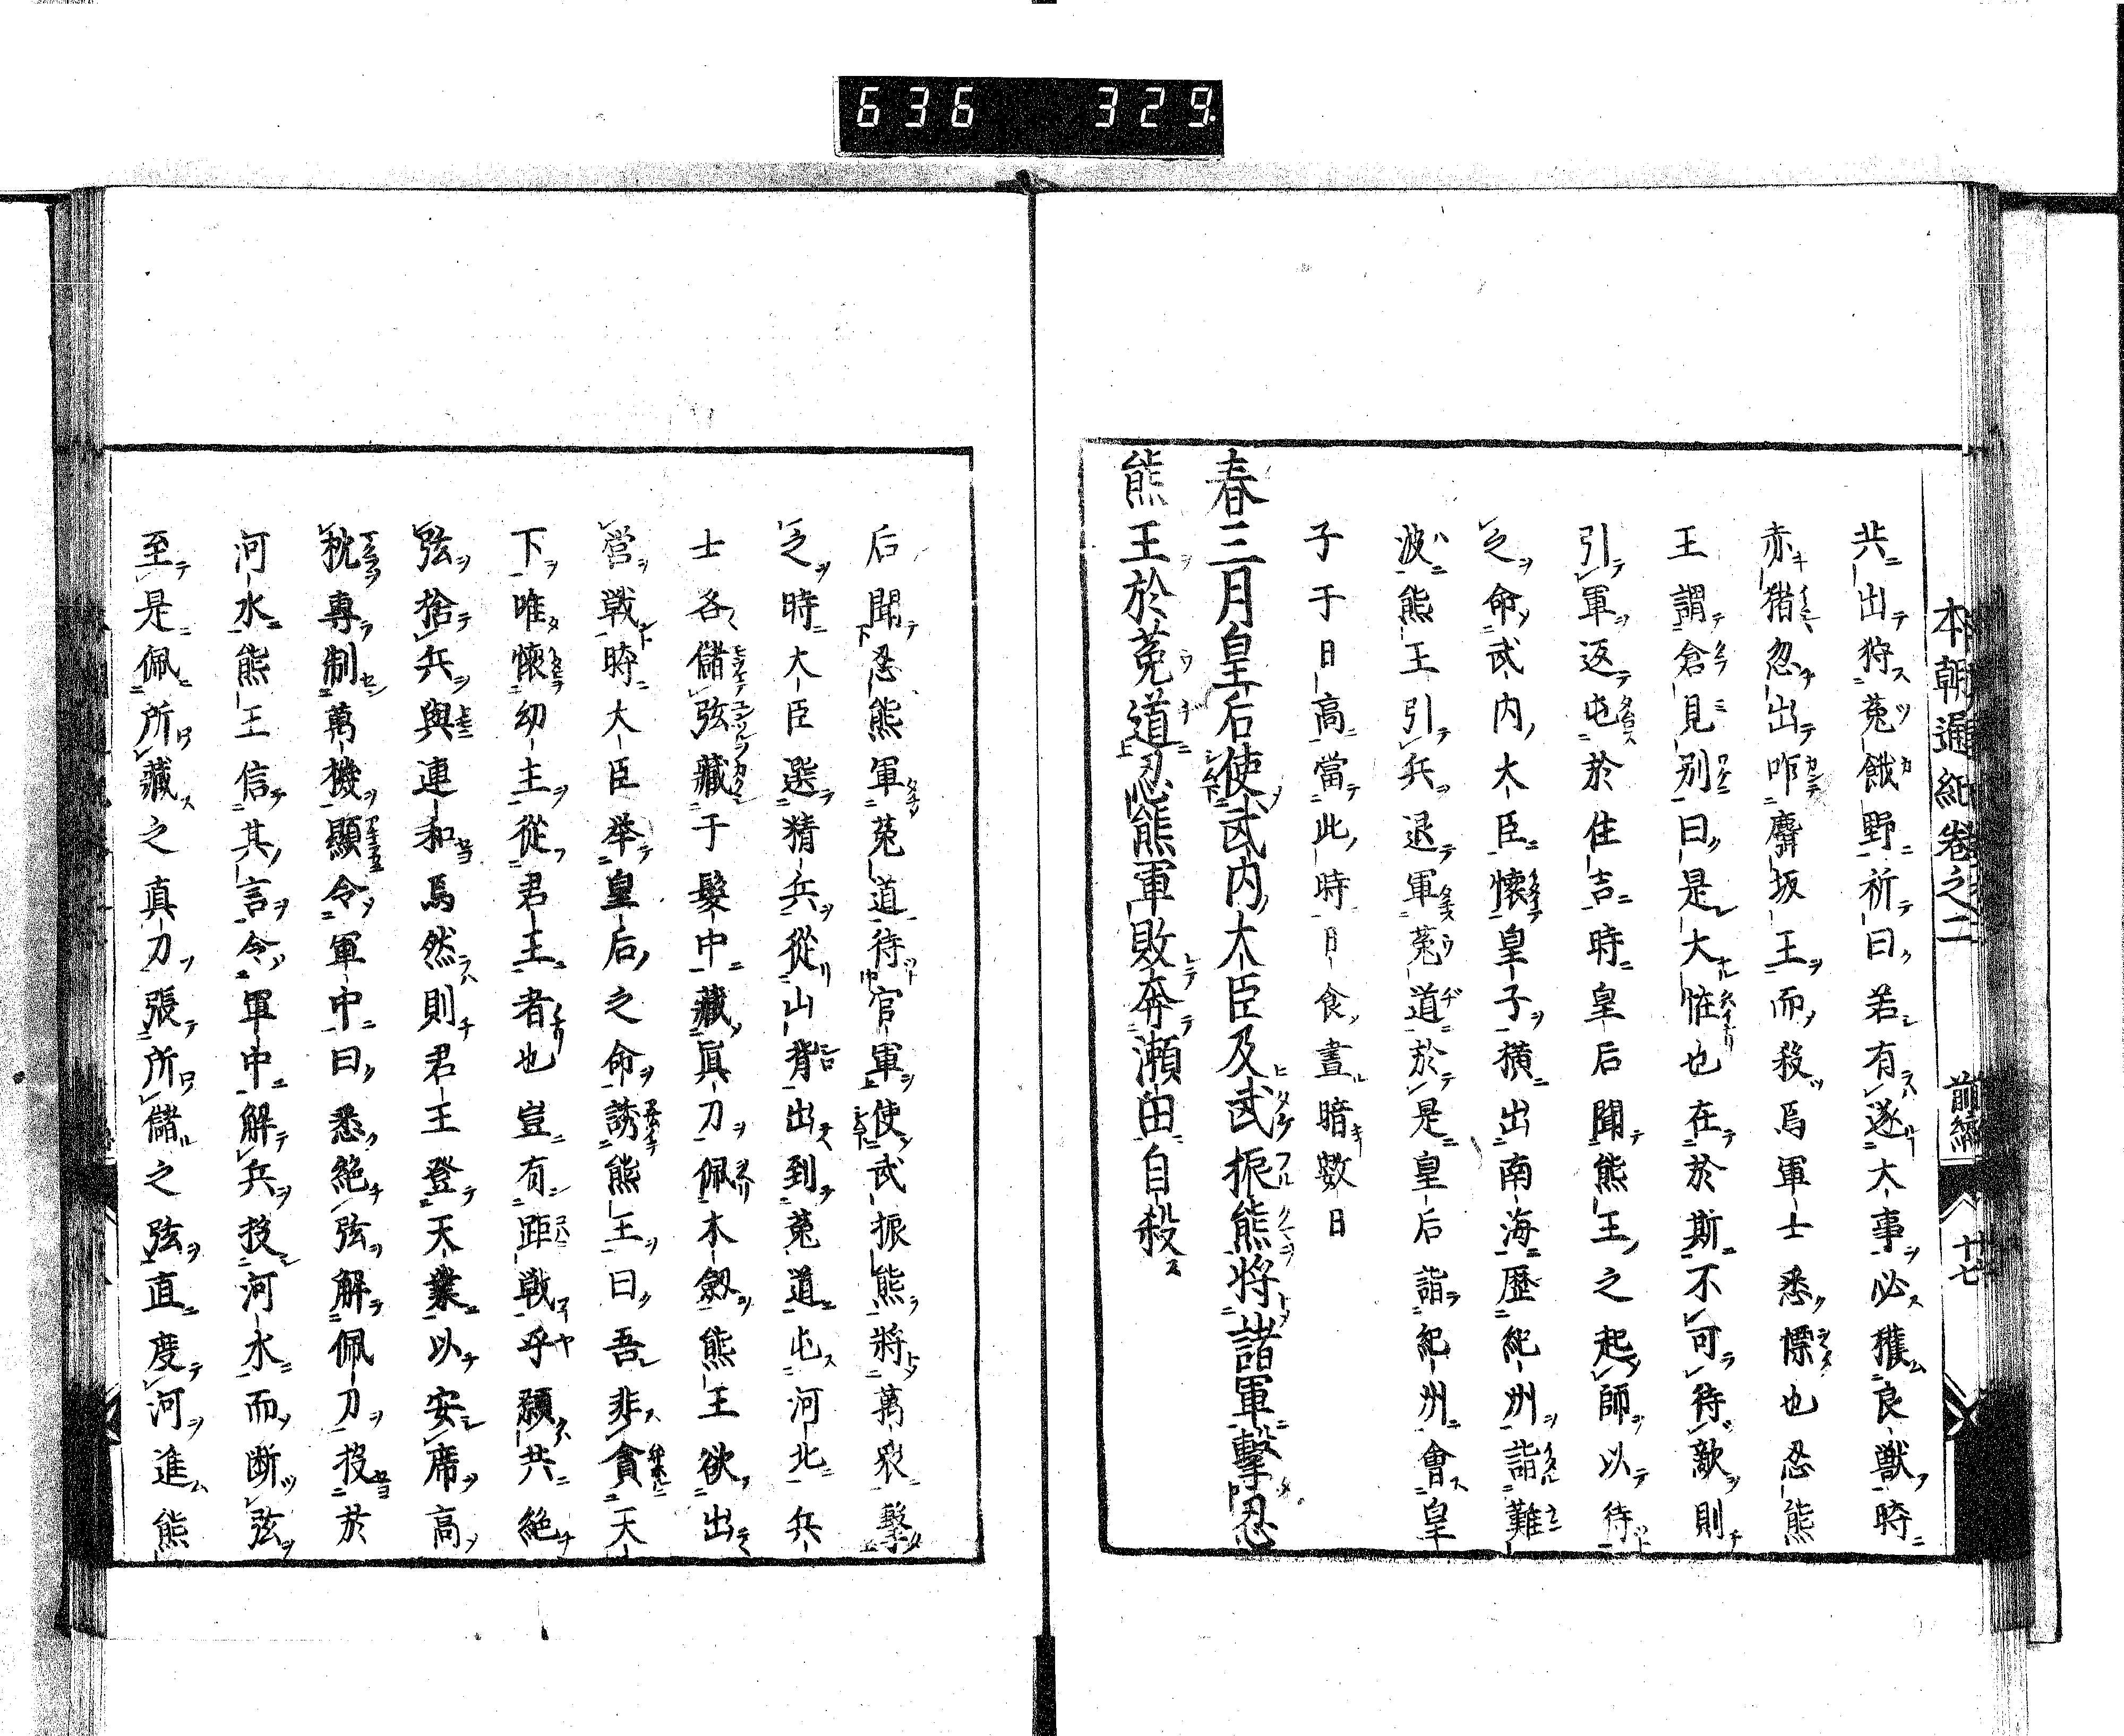 636 329
本朝通紀卷之二 前編 十七
共出狩菟餓野祈曰若有遂大事必獲良獸時
赤猪忽出咋麛坂王而殺焉軍士悉慓也忍熊
王謂倉見別曰是大恠也在於斯不可待敵則
引軍返屯於住吉時皇后聞熊王之起師以待
之命武内大臣懷皇子橫出南海歷紀州詣難
波熊王引兵退軍菟道於是皇后詣紀州會皇
子于日高當此時日食晝暗數日
春三月皇后使武内大臣及武振熊將諸軍擊忍
熊王於菟道忍熊軍敗奔瀬田自殺
后聞忍熊軍菟道待官軍使武振熊將萬衆擊
之時大臣選精兵從山背出到菟道屯河北兵
士各儲弦藏于髮中藏眞刀佩木劔熊王欲出
營戰時大臣举皇后之命誘熊王曰吾非貪天
下唯懷幼主從君王者也豈有距戰乎願共絶
弦捨兵與連和焉然則君王登天業以安席高
枕專制萬機顯令軍中曰悉絶弦解佩刀投於
河水熊王信其言令軍中解兵投河水而断弦
至是佩所藏之真刀張所儲之弦直度河進熊